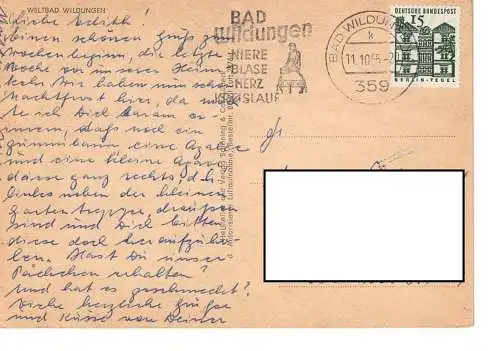 WELTBAD WILDUNGEN
Liebe Edith!
Einen schönen Gruß zum
Wochenbeginn, die letzte
Woche vor unserer Heim-
kehr. Wir haben nun schon
Nachtfrost hier, da möch-
te ich Dich daran er-
innern, daß noch ein
Gummibaum, eine Azalee
und eine kleine Agave
diese ganz rechts, d.h.
links neben der kleinen
Gartentreppe, draußen
sind und Dich bitten
diese doch heraufzuho-
len. Hast Du unser
Päckchen erhalten?
Und hat es geschmeckt?
Viele herzliche Grüße
und Küsse von Deiner
BAD
Wildungen
NIERE
BLASE
HERZ
KREISLAUF
BAD WILDUNGEN
k
11.10.65-20
359
DEUTSCHE BUNDESPOST
15
BERLIN-TEGEL